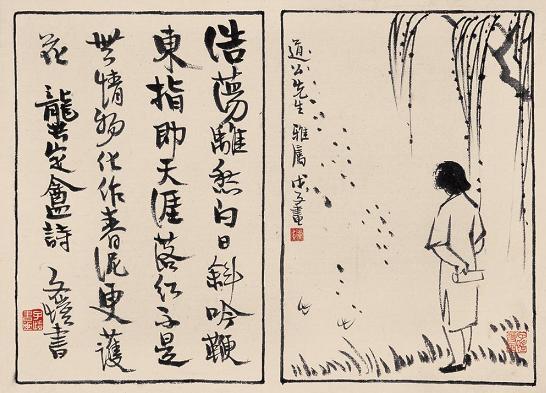 道公先生 雅屬 戊子畫
浩蕩離愁白日斜吟鞭
東指即天涯落紅不是
無情物化作春泥更護
花 龔定盦詩
子愷書